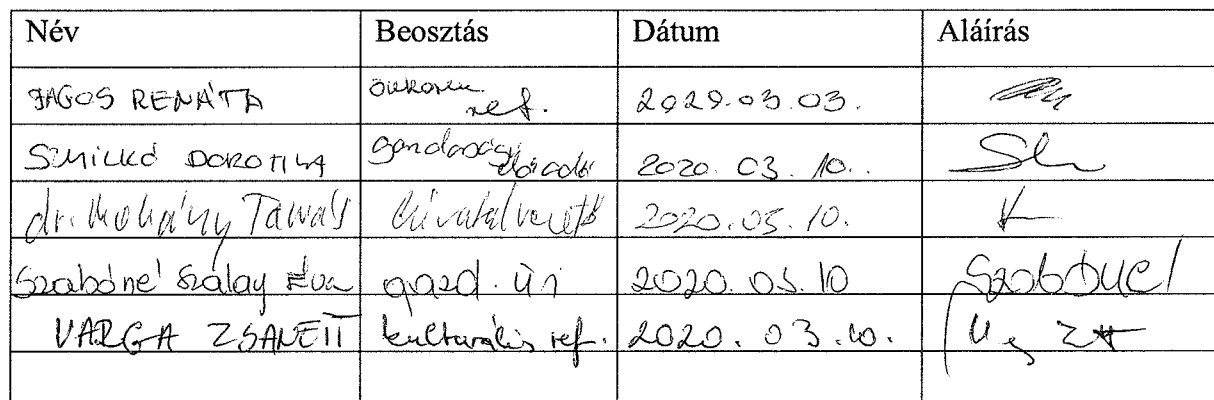 Név Beosztás Dátum Aláírás
JAGOS RENÁTA ref. 2020.03.03.
DOROTTYA 2020. 03. 10.
dr. Mohány Tamás hivatalvezető 2020.03.10.
Szabóné Szalay Éva gazd. üi 2020. 03. 10 Szabóné
VARGA ZSANETT kulturális ref. 2020. 03. 10.